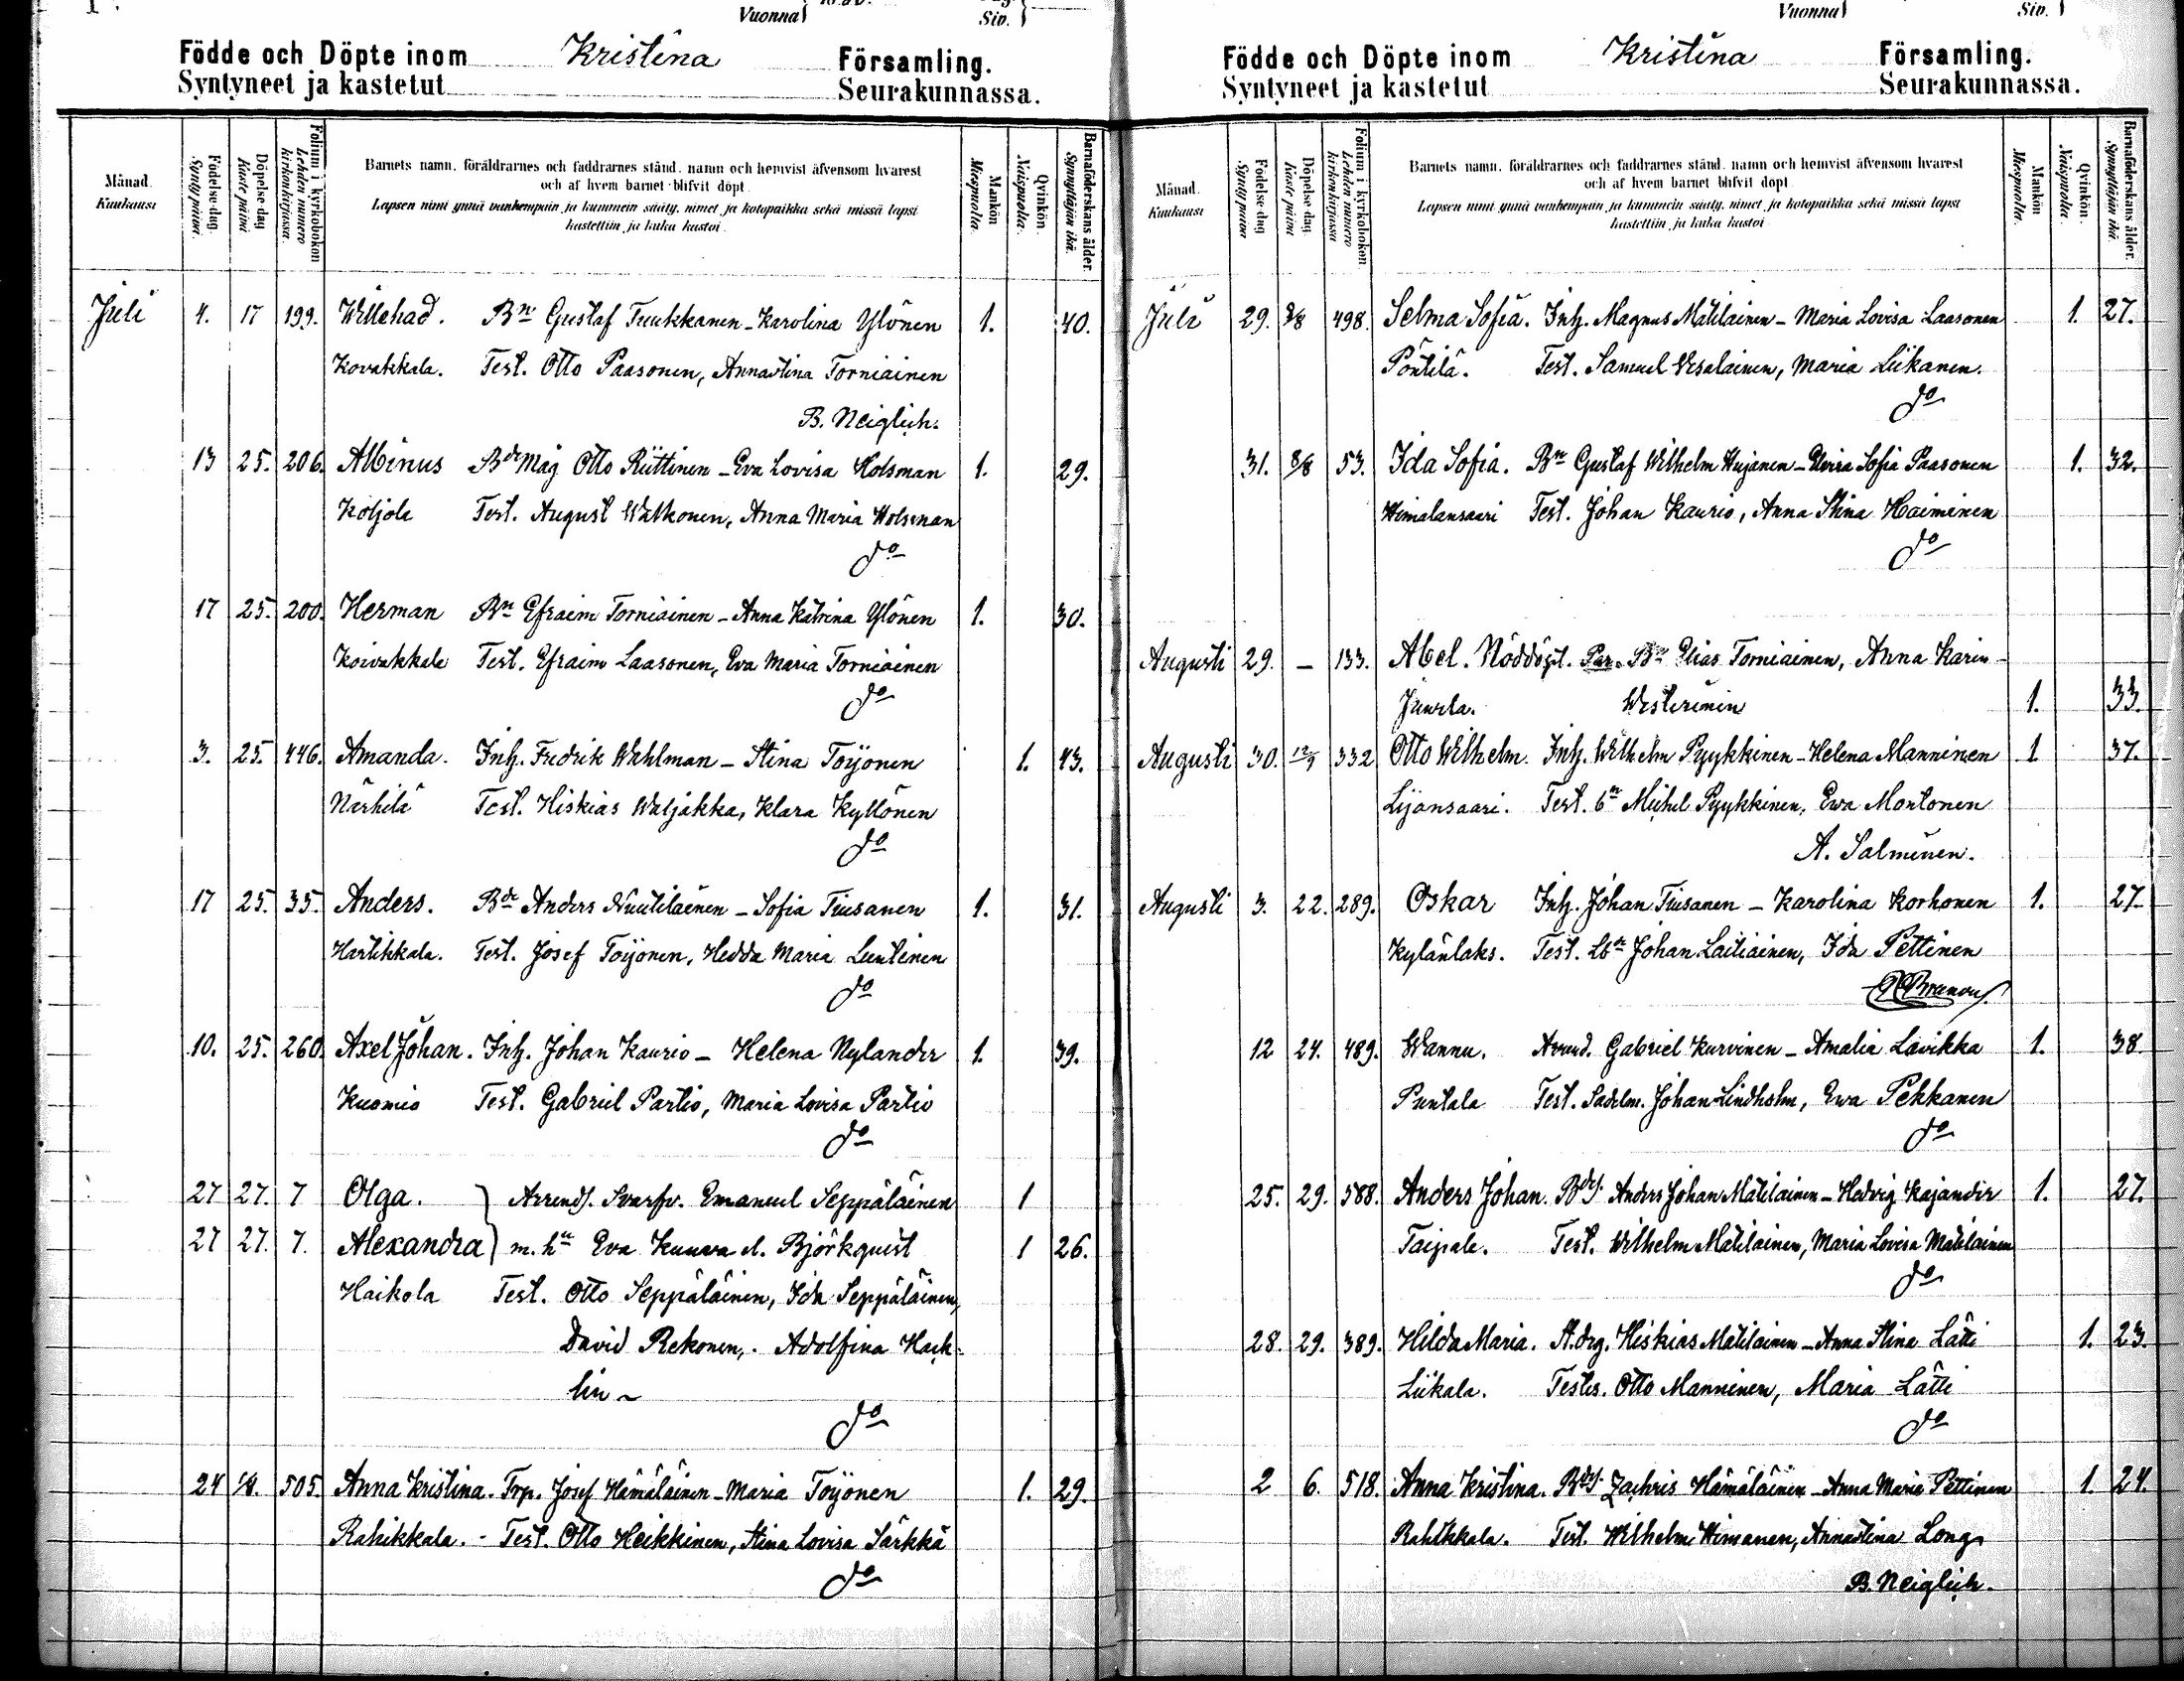 Vuonna
Siv.
Födde och Döpte inom Kristina Församling.
Syntyneet ja kastetut Seurakunnassa.
Månad. Kuukausi
Födelse-dag. Syntypäivä.
Döpelse-dag Kastepäivä
Folium i kyrkoboken Lehden numero kirkonkirjassa.
Barnets namn, föräldrarnes och faddrarnes stånd, namn och hemvist äfvensom hvarest
och af hvem barnet blifvit döpt.
Lapsen nimi ynnä vanhempain ja kummein sääty, nimet ja kotopaikka sekä missä lapsi
kastettiin ja kuka kastoi.
Mankön Miespuolia.
Qvinkön. Naispuolia.
Barnaföderskans ålder. Synnyttäjän ikä.
Juli 4. 17 199. Willehad. Bn Gustaf Tuukkanen - Karolina Ylönen 1. 40.
Kovakkala. Test. Otto Paasonen, Annastina Torniainen
B. Neiglich.
13 25. 206. Albinus Bde Måg Otto Riittinen - Eva Lovisa Holsman 1. 29.
Koljola Test. August Walkonen, Anna Maria Holsman
do
17 25. 200. Herman Bn Efraim Torniainen - Anna Katrina Ylönen 1. 30.
Koivakkala Test. Efraim Laasonen, Eva Maria Torniainen
do
3. 25. 446. Amanda. Inh. Fredrik Wahlman - Stina Töyönen 1. 43.
Närhilä Test. Hiskias Waljakka, Klara Kyllönen
do
17 25. 35. Anders. Bde Anders Nuutilainen - Sofia Tiusanen 1. 31.
Hartikkala. Test. Josef Töyönen, Hedda Maria Luntinen
do
10. 25. 260. Axel Johan. Inh. Johan Kaurio - Helena Nylander 1. 39.
Kuomio Test. Gabriel Partio, Maria Lovisa Partio
do
27 27. 7 Olga. Arrend. Svarfv. Emanuel Seppäläinen 1
27 27. 7. Alexandra m. hu Eva Kunva d. Björkquist 1 26.
Haikola Test. Otto Seppäläinen, Ida Seppäläinen,
David Rekonen, Adolfina Hack-
lin
do
24 1/8. 505. Anna Kristina. Trp. Josef Hämäläinen - Maria Töyönen 1. 29.
Rahikkala. - Test. Otto Heikkinen, Stina Lovisa Särkkä
do
Vuonna
Siv.
Födde och Döpte inom Kristina Församling.
Syntyneet ja kastetut Seurakunnassa.
Månad. Kuukausi
Födelse-dag Syntypäivä
Döpelse-dag. Kastepäivä
Folium i kyrkoboken Lehden numero kirkonkirjassa
Barnets namn, föräldrarnes och faddrarnes stånd, namn och hemvist äfvensom hvarest
och af hvem barnet blifvit döpt
Lapsen nimi ynnä vanhempain ja kummein sääty, nimet ja kotopaikka sekä missä lapsi
kastettiin ja kuka kastoi
Mankön Miespuolia.
Qvinkön. Naispuolia.
Barnaföderskans ålder. Synnyttäjän ikä.
Juli 29. 8/8 498. Selma Sofia. Inh. Magnus Matilainen - Maria Lovisa Laasonen 1. 27.
Pöntilä. Test. Samuel Vesalainen, Maria Liikanen.
do
31. 8/8 53. Ida Sofia. Bn Gustaf Wilhelm Hujanen - Elvira Sofia Paasonen 1. 32.
Himalansaari Test. Johan Kaurio, Anna Stina Haiminen
do
Augusti 29. - 133. Abel. Nöddöpt. Par. Bn Elias Torniainen, Anna Karin
Juurla. Westerinen 1. 33.
Augusti 30. 12/9 332 Otto Wilhelm. Inh. Wilhelm Pyykkinen - Helena Manninen 1 37.
Lijansaari. Test. bn Michel Pyykkinen, Ewa Montonen
A. Salminen.
Augusti 3. 22. 289. Oskar Inh. Johan Tiusanen - Karolina Korhonen 1. 27.
Kylänlaks. Test. Lbn Johan Laitiainen, Ida Pettinen
12 24. 489. Wannu. Arend. Gabriel Kurvinen - Amalia Lavikka 1. 38
Puntala Test. Sadelm. Johan Lindholm, Ewa Pekkanen
do
25. 29. 588. Anders Johan. Bds. Anders Johan Matilainen - Hedvig Kajander 1. 27.
Taipale. Test. Wilhelm Matilainen, Maria Lovisa Matilainen
do
28. 29. 389. Hilda Maria. St.drg. Hiskias Matilainen - Anna Stina Lätti 1. 23.
Liikala. Testes. Otto Manninen, Maria Lätti
do
2 6. 518. Anna Kristina. Bds. Zachris Hämäläinen - Anna Maria Pettinen 1. 24.
Rahikkala. Test. Wilhelm Himanen, Annastina Long
B. Neiglich.